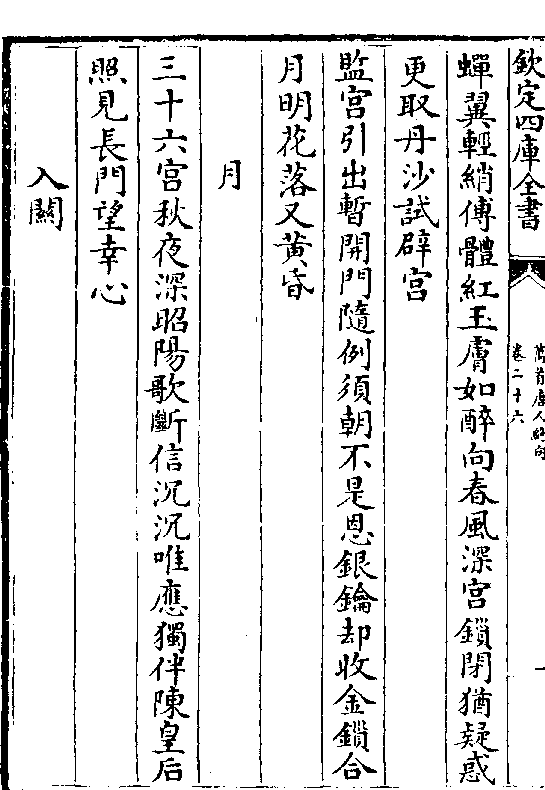 欽定四庫全書
萬首唐人絶句
卷二十六
蟬翼輕綃傅體紅玉膚如醉向春風深宮鎖閉猶疑惑
更取丹沙試辟宮
監宮引出暫開門隨例須朝不是恩銀鑰却收金鎖合
月明花落又黄昏
月
三十六宮秋夜深昭陽歌斷信沉沉唯應獨伴陳皇后
照見長門望幸心
入關